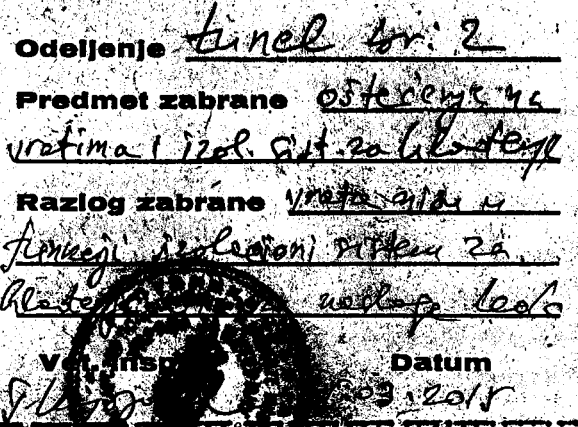 Odeljenje tunel br: 2
Predmet zabrane oštećenje na
vratima i izol. sist. za hlađenje
Razlog zabrane vrata nisu u
funkciji izolacioni sistem za
hlađenje naslage leda
Vet. insp
Datum
03.2015